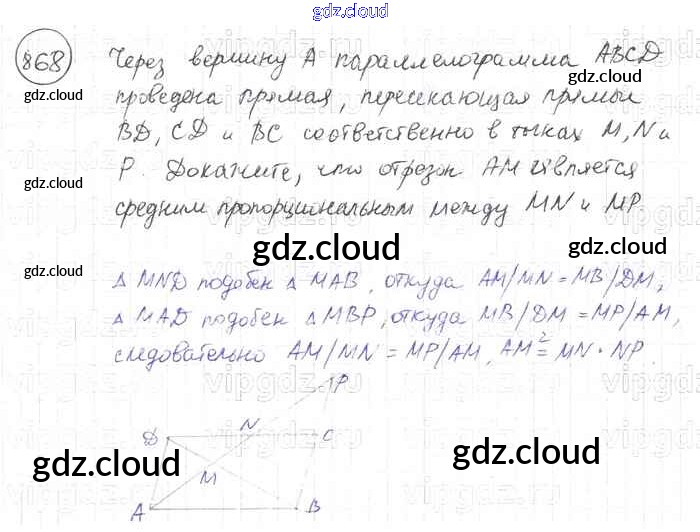 gdz.cloud
868 Через вершину А параллелограмма ABCD
gdz.cloud
gdz.cloud
проведена прямая, пересекающая прямые
BD, CD и BC соответственно в точках M, N и
gdz.cloud
gdz.cloud
P. Докажите, что отрезок AM является
средним пропорциональным между MN и MP.
gdz.cloud
gdz.cloud
gdz.cloud
△ MND подобен △ MAB, откуда AM/MN = MB/DM,
△ MAD подобен △ MBP, откуда MB/DM = MP/AM,
следовательно AM/MN = MP/AM, AM² = MN · NP.
P
D N C
gdz.cloud
gdz.cloud
M
A B